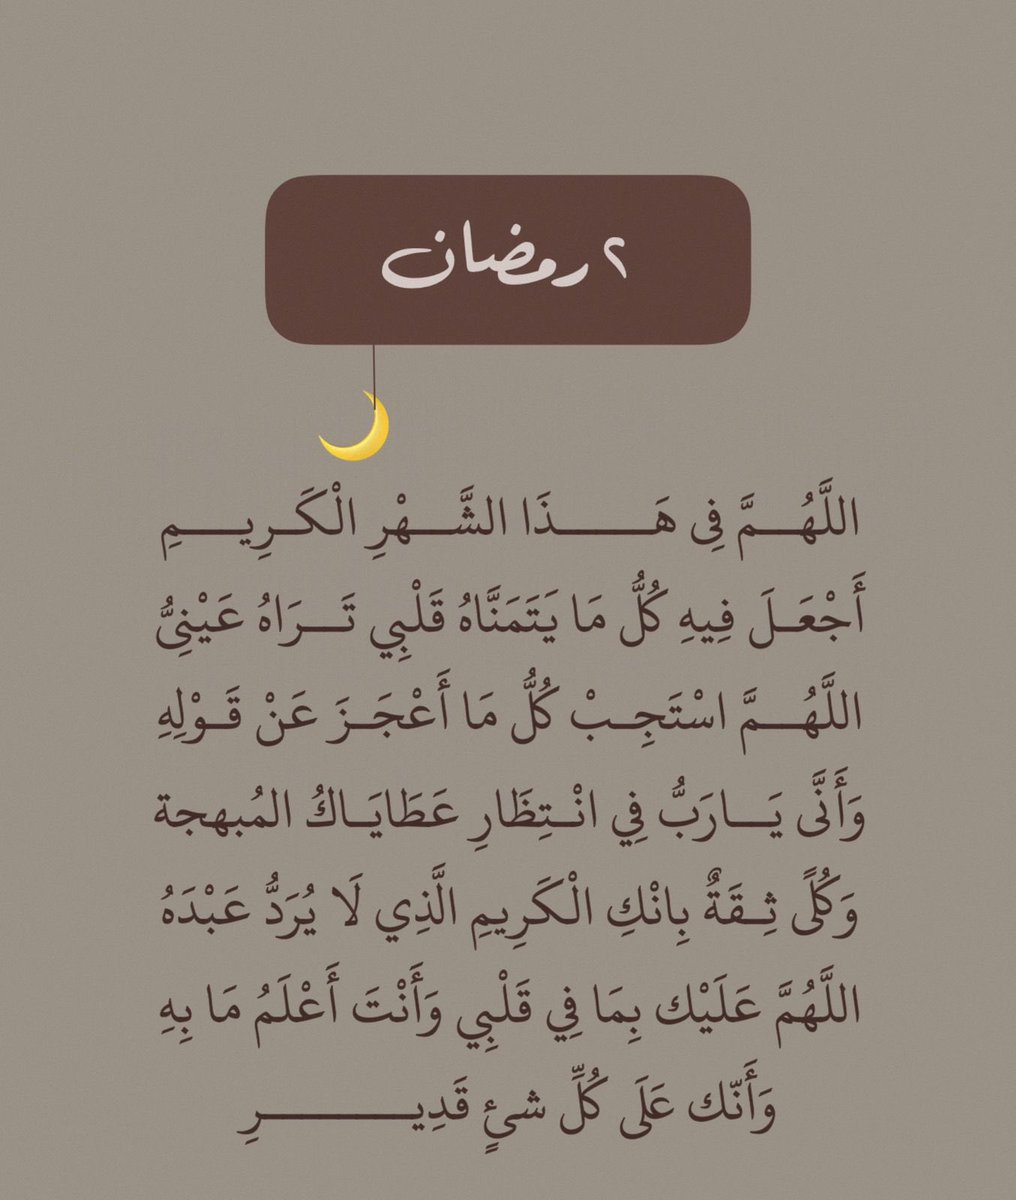 ٢ رمضان
اللَّهُـــمَّ فِى هَـــــــذَا الشَّـــهْرِ الْكَـرِيـــــمِ
أَجْعَـلَ فِيهِ كُلُّ مَا يَتَمَنَّاهُ قَلْبِي تَـــرَاهُ عَيْنِىُّ
اللَّهُـــمَّ اسْتَجِـبْ كُلُّ مَا أَعْجَـزَ عَنْ قَـوْلِهِ
وَأَنَّى يَـــارَبُّ فِي انْـتِظَارِ عَطَايَـاكُ المُبهجة
وَكُلًى ثِـقَةٌ بِانْكِ الْكَرِيمِ الَّذِي لَا يُرَدُّ عَبْدَهُ
اللَّهُمَّ عَلَيْك بِمَا فِي قَلْبِي وَأَنْتَ أَعْلَمُ مَا بِهِ
وَأَنّك عَلَى كُلِّ شئٍ قَدِيـــــــــــرِ